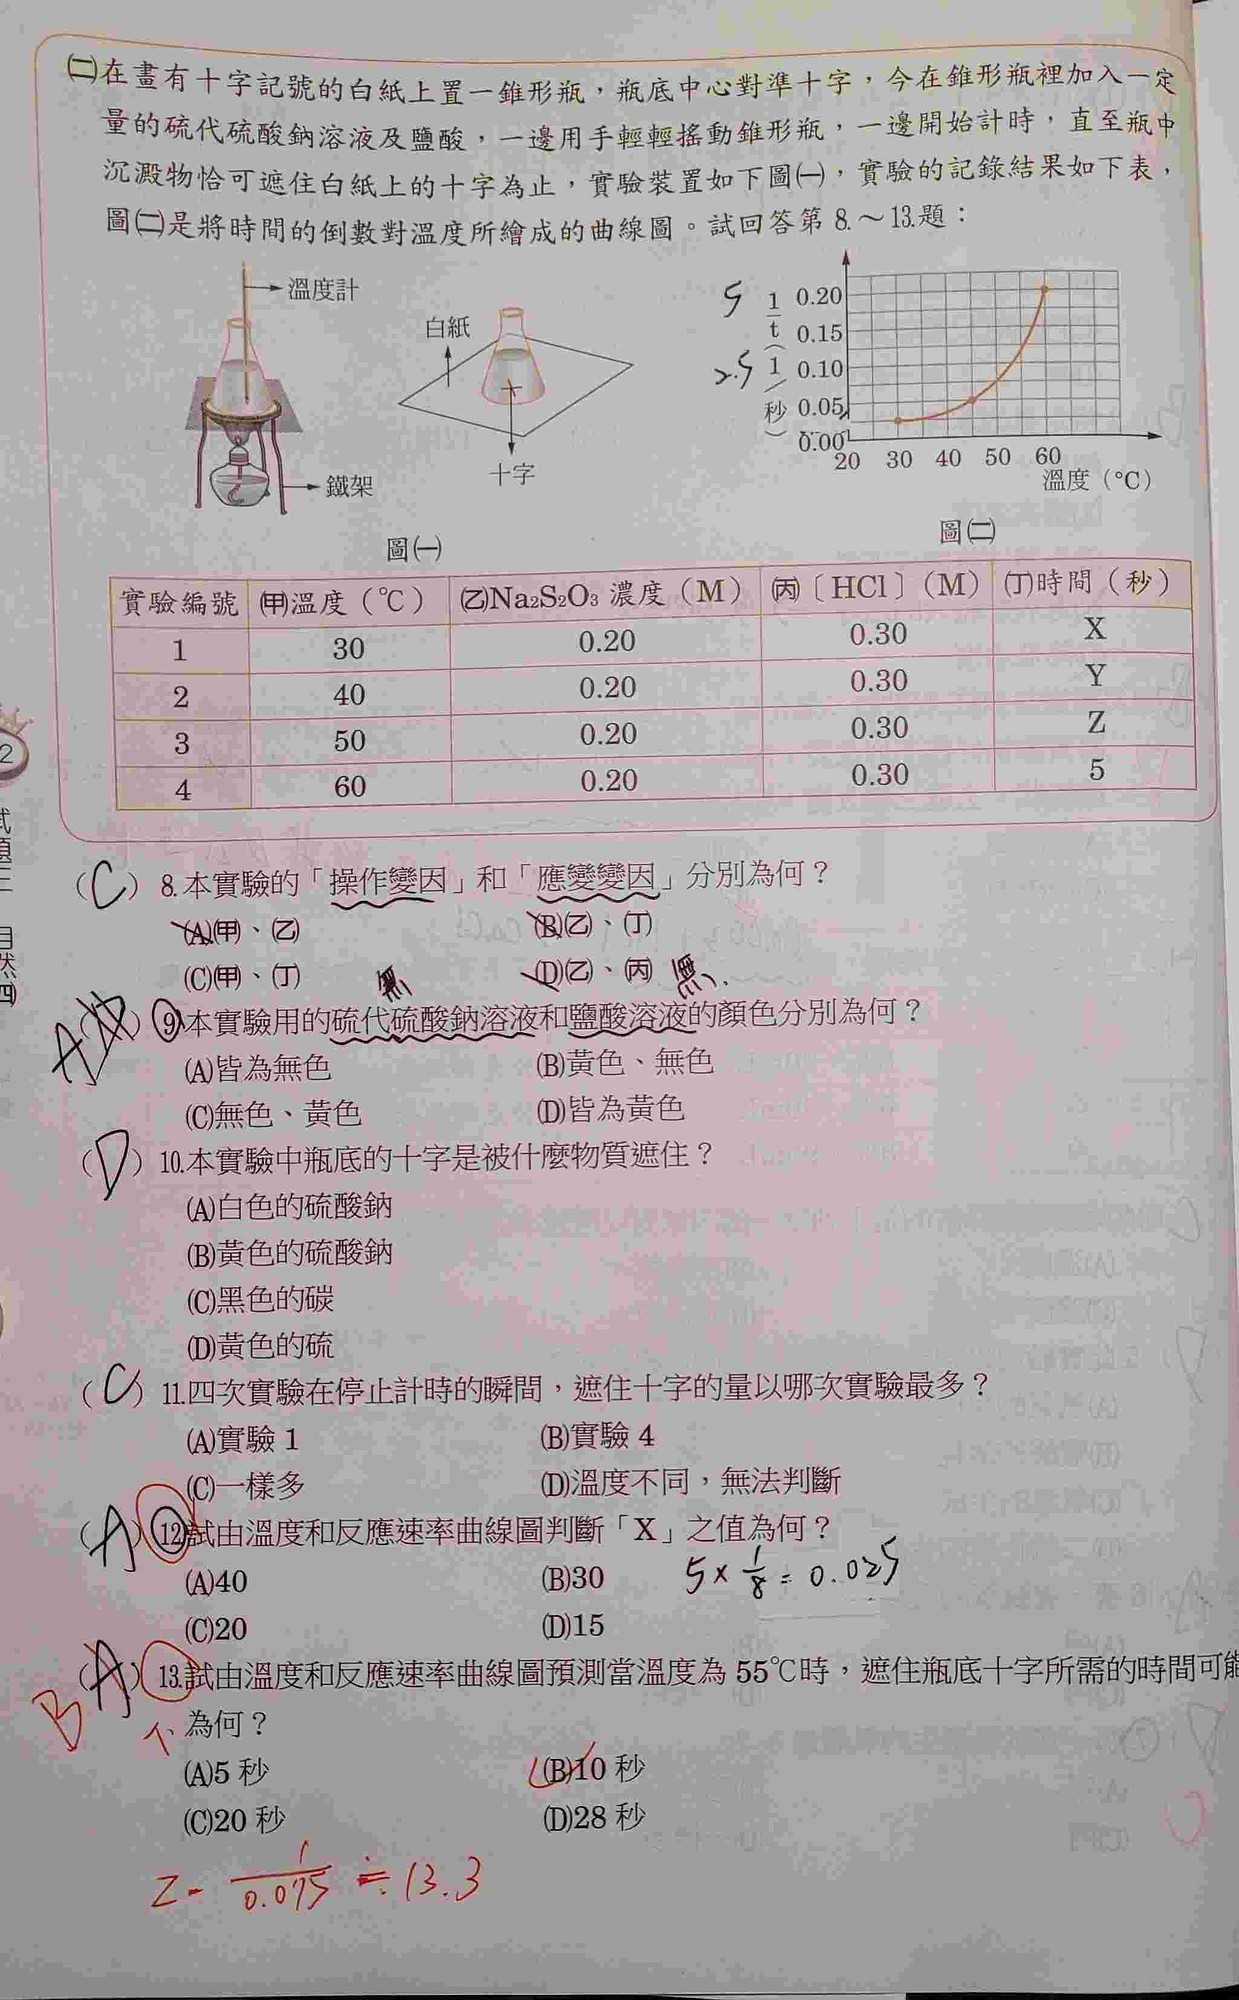 ㈡在畫有十字記號的白紙上置一錐形瓶，瓶底中心對準十字，今在錐形瓶裡加入一定
量的硫代硫酸鈉溶液及鹽酸，一邊用手輕輕搖動錐形瓶，一邊開始計時，直至瓶中
沉澱物恰可遮住白紙上的十字為止，實驗裝置如下圖㈠，實驗的記錄結果如下表，
圖㈡是將時間的倒數對溫度所繪成的曲線圖。試回答第 8.～13.題：
溫度計
鐵架
白紙
十字
圖㈠
5
2.5
1/t（1/秒）
0.20
0.15
0.10
0.05
0.00
20 30 40 50 60
溫度（℃）
圖㈡
實驗編號 ㈙溫度（℃） ㈚Na₂S₂O₃ 濃度（M） ㈛〔HCl〕（M） ㈜時間（秒）
1 30 0.20 0.30 X
2 40 0.20 0.30 Y
3 50 0.20 0.30 Z
4 60 0.20 0.30 5
2
（C）8.本實驗的「操作變因」和「應變變因」分別為何？
(A)㈙、㈚ (B)㈚、㈜
(C)㈙、㈜ (D)㈚、㈛
無 無
A（ ）9.本實驗用的硫代硫酸鈉溶液和鹽酸溶液的顏色分別為何？
(A)皆為無色 (B)黃色、無色
(C)無色、黃色 (D)皆為黃色
（D）10.本實驗中瓶底的十字是被什麼物質遮住？
(A)白色的硫酸鈉
(B)黃色的硫酸鈉
(C)黑色的碳
(D)黃色的硫
（C）11.四次實驗在停止計時的瞬間，遮住十字的量以哪次實驗最多？
(A)實驗 1 (B)實驗 4
(C)一樣多 (D)溫度不同，無法判斷
（A）12.試由溫度和反應速率曲線圖判斷「X」之值為何？
(A)40 (B)30
5 × 1/8 = 0.025
(C)20 (D)15
B（A）13.試由溫度和反應速率曲線圖預測當溫度為 55℃時，遮住瓶底十字所需的時間可能
為何？
(A)5 秒 (B)10 秒
(C)20 秒 (D)28 秒
Z = 1/0.075 ≒ 13.3